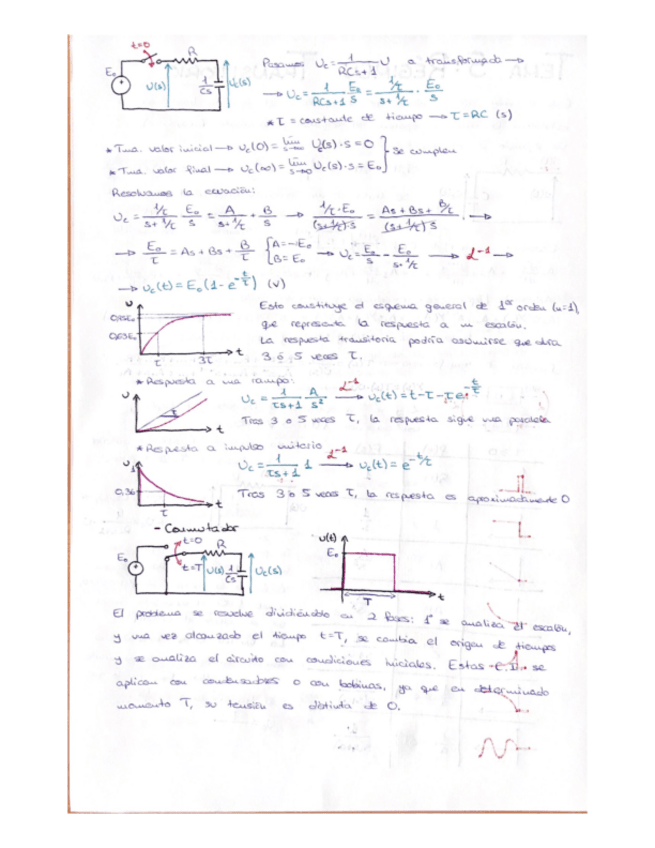 t=0
R
E₀
U(s)
1/Cs
U_c(s)
Pasamos U_c = 1/(RCs+1) U a transformada →
→ U_c = 1/(RCs+1) E₀/s = (1/τ)/(s+1/τ) · E₀/s
* τ = constante de tiempo → τ=RC (s)
* Tma. valor inicial → u_c(0) = lím s→∞ U_c(s)·s = 0
* Tma. valor final → u_c(∞) = lím s→0 U_c(s)·s = E₀
Se cumplen
Resolvamos la ecuación:
U_c = (1/τ)/(s+1/τ) E₀/s = A/(s+1/τ) + B/s → (1/τ·E₀)/((s+1/τ)s) = (As+Bs+B/τ)/((s+1/τ)s) →
→ E₀/τ = As+Bs+B/τ {A=-E₀ B=E₀ → U_c = E₀/s - E₀/(s+1/τ) → L⁻¹ →
→ u_c(t) = E₀(1-e^(-t/τ)) (v)
U
0,95E₀
0,63E₀
τ
3τ
t
Esto constituye el esquema general de 1er orden (n=1),
que representa la respuesta a un escalón.
La respuesta transitoria podría asumirse que dura
3 ó 5 veces τ.
* Respuesta a una rampa:
U
τ
t
U_c = 1/(τs+1) A/s² L⁻¹ → u_c(t) = t-τ-τe^(-t/τ)
Tras 3 o 5 veces τ, la respuesta sigue una paralela
* Respuesta a impulso unitario
U
1
0,36
τ
t
U_c = 1/(τs+1) 1 L⁻¹ → u_c(t) = e^(-t/τ)
Tras 3 ó 5 veces τ, la respuesta es aproximadamente 0
- Conmutador
t=0
R
E₀
t=T
U(s)
1/Cs
U_c(s)
u(t)
E₀
T
t
El problema se resuelve dividiéndolo en 2 fases: 1º se analiza el escalón,
y una vez alcanzado el tiempo t=T, se cambia el origen de tiempos
y se analiza el circuito con condiciones iniciales. Estas C.I. se
aplican con condensadores o con bobinas, ya que en determinado
momento T, su tensión es distinta de 0.